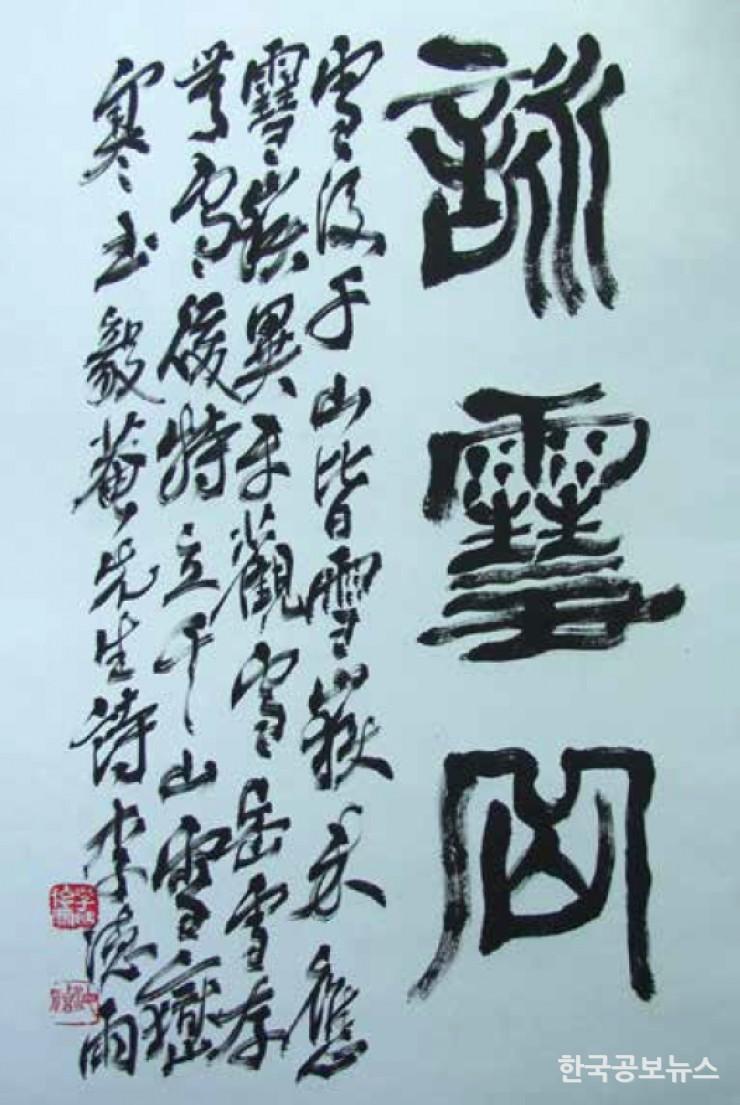 詠雪岳
雪後千山皆雪嶽未應
雪嶽異于觀雪岳雪存
無雪後特立千山雪嶽
寒玉毅菴先生詩李德雨
한국공보뉴스